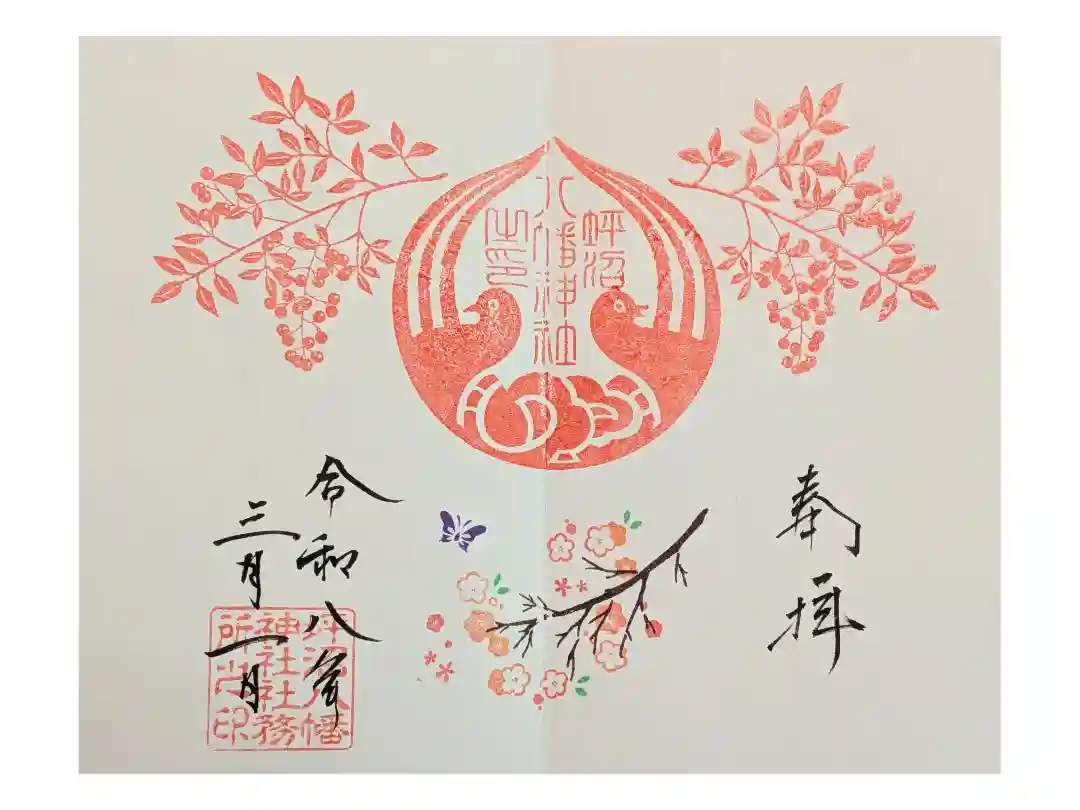 奉拝
坪沼
八幡神社
之印
令和八年
三月一日
坪沼八幡
神社社務
所之印